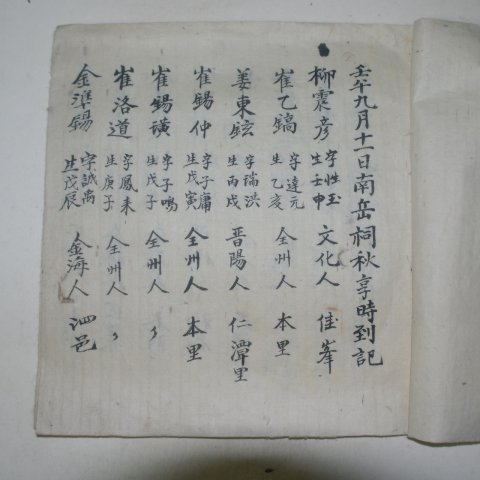 壬午九月十一日南岳祠秋享時到記
柳震彦 字性玉 生壬申 文化人 佳峯
崔乙鎬 字達元 生乙亥 仝州人 本里
姜東鉉 字瑞洪 生丙戌 晋陽人 仁潭里
崔錫仲 字子庸 生戊寅 全州人 本里
崔錫璜 字子鳴 生戊子 仝州人 〃
崔洛道 字鳳来 生庚子 仝州人 〃
金準錫 字誠禹 生戊辰 金海人 泗邑